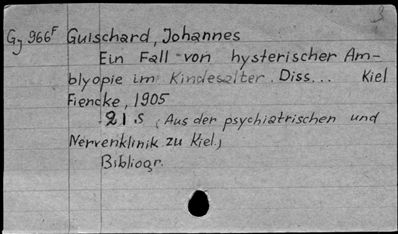 Gy 966F Guischard, Johannes
Ein Fall von hysterischer Am-
blyopie im Kindesalter. Diss... Kiel
Fiencke, 1905
21 S (Aus der psychiatrischen und
Nervenklinik zu Kiel)
Bibliogr.